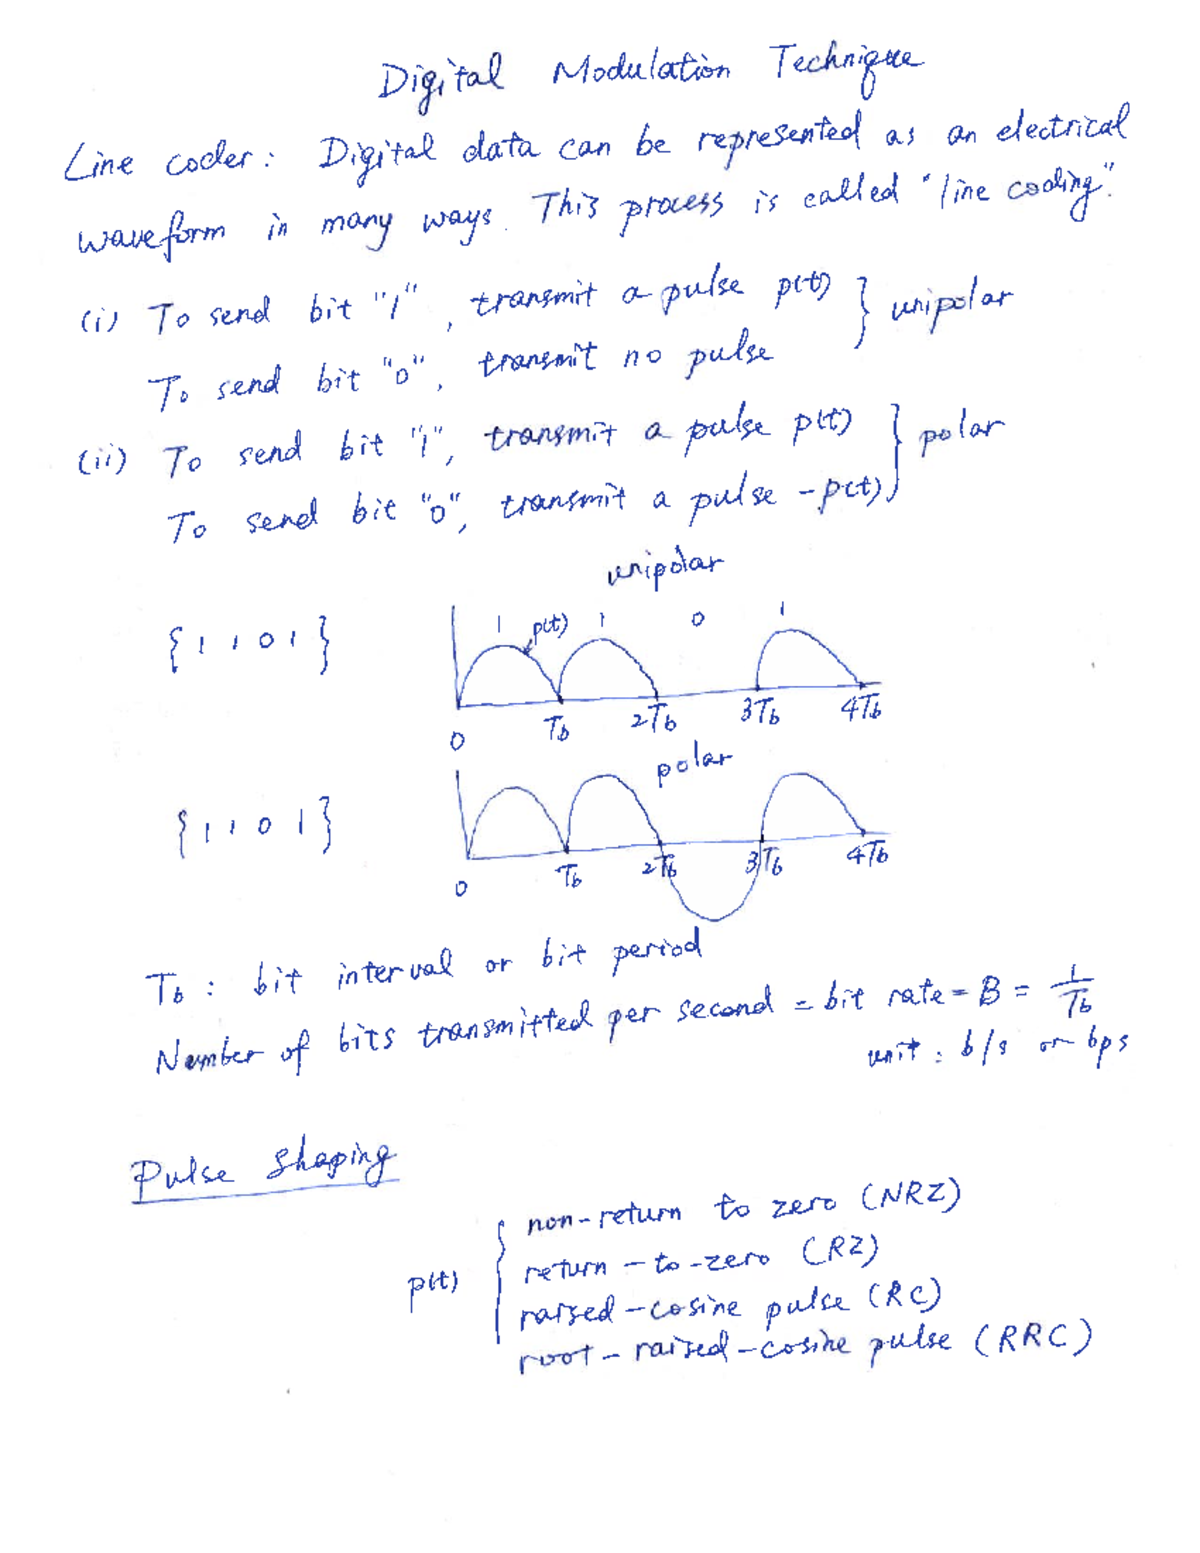 Digital Modulation Technique
Line coder: Digital data can be represented as an electrical
waveform in many ways. This process is called "line coding".
(i) To send bit "1", transmit a pulse p(t) } unipolar
To send bit "0", transmit no pulse
(ii) To send bit "1", transmit a pulse p(t) } polar
To send bit "0", transmit a pulse -p(t)
unipolar
{1 1 0 1} 1 p(t) 1 0 1
0 Tb 2Tb 3Tb 4Tb
polar
{1 1 0 1}
0 Tb 2Tb 3Tb 4Tb
Tb : bit interval or bit period
Number of bits transmitted per second = bit rate = B = 1/Tb
unit: b/s or bps
Pulse Shaping
non-return to zero (NRZ)
p(t) { return-to-zero (RZ)
raised-cosine pulse (RC)
root-raised-cosine pulse (RRC)